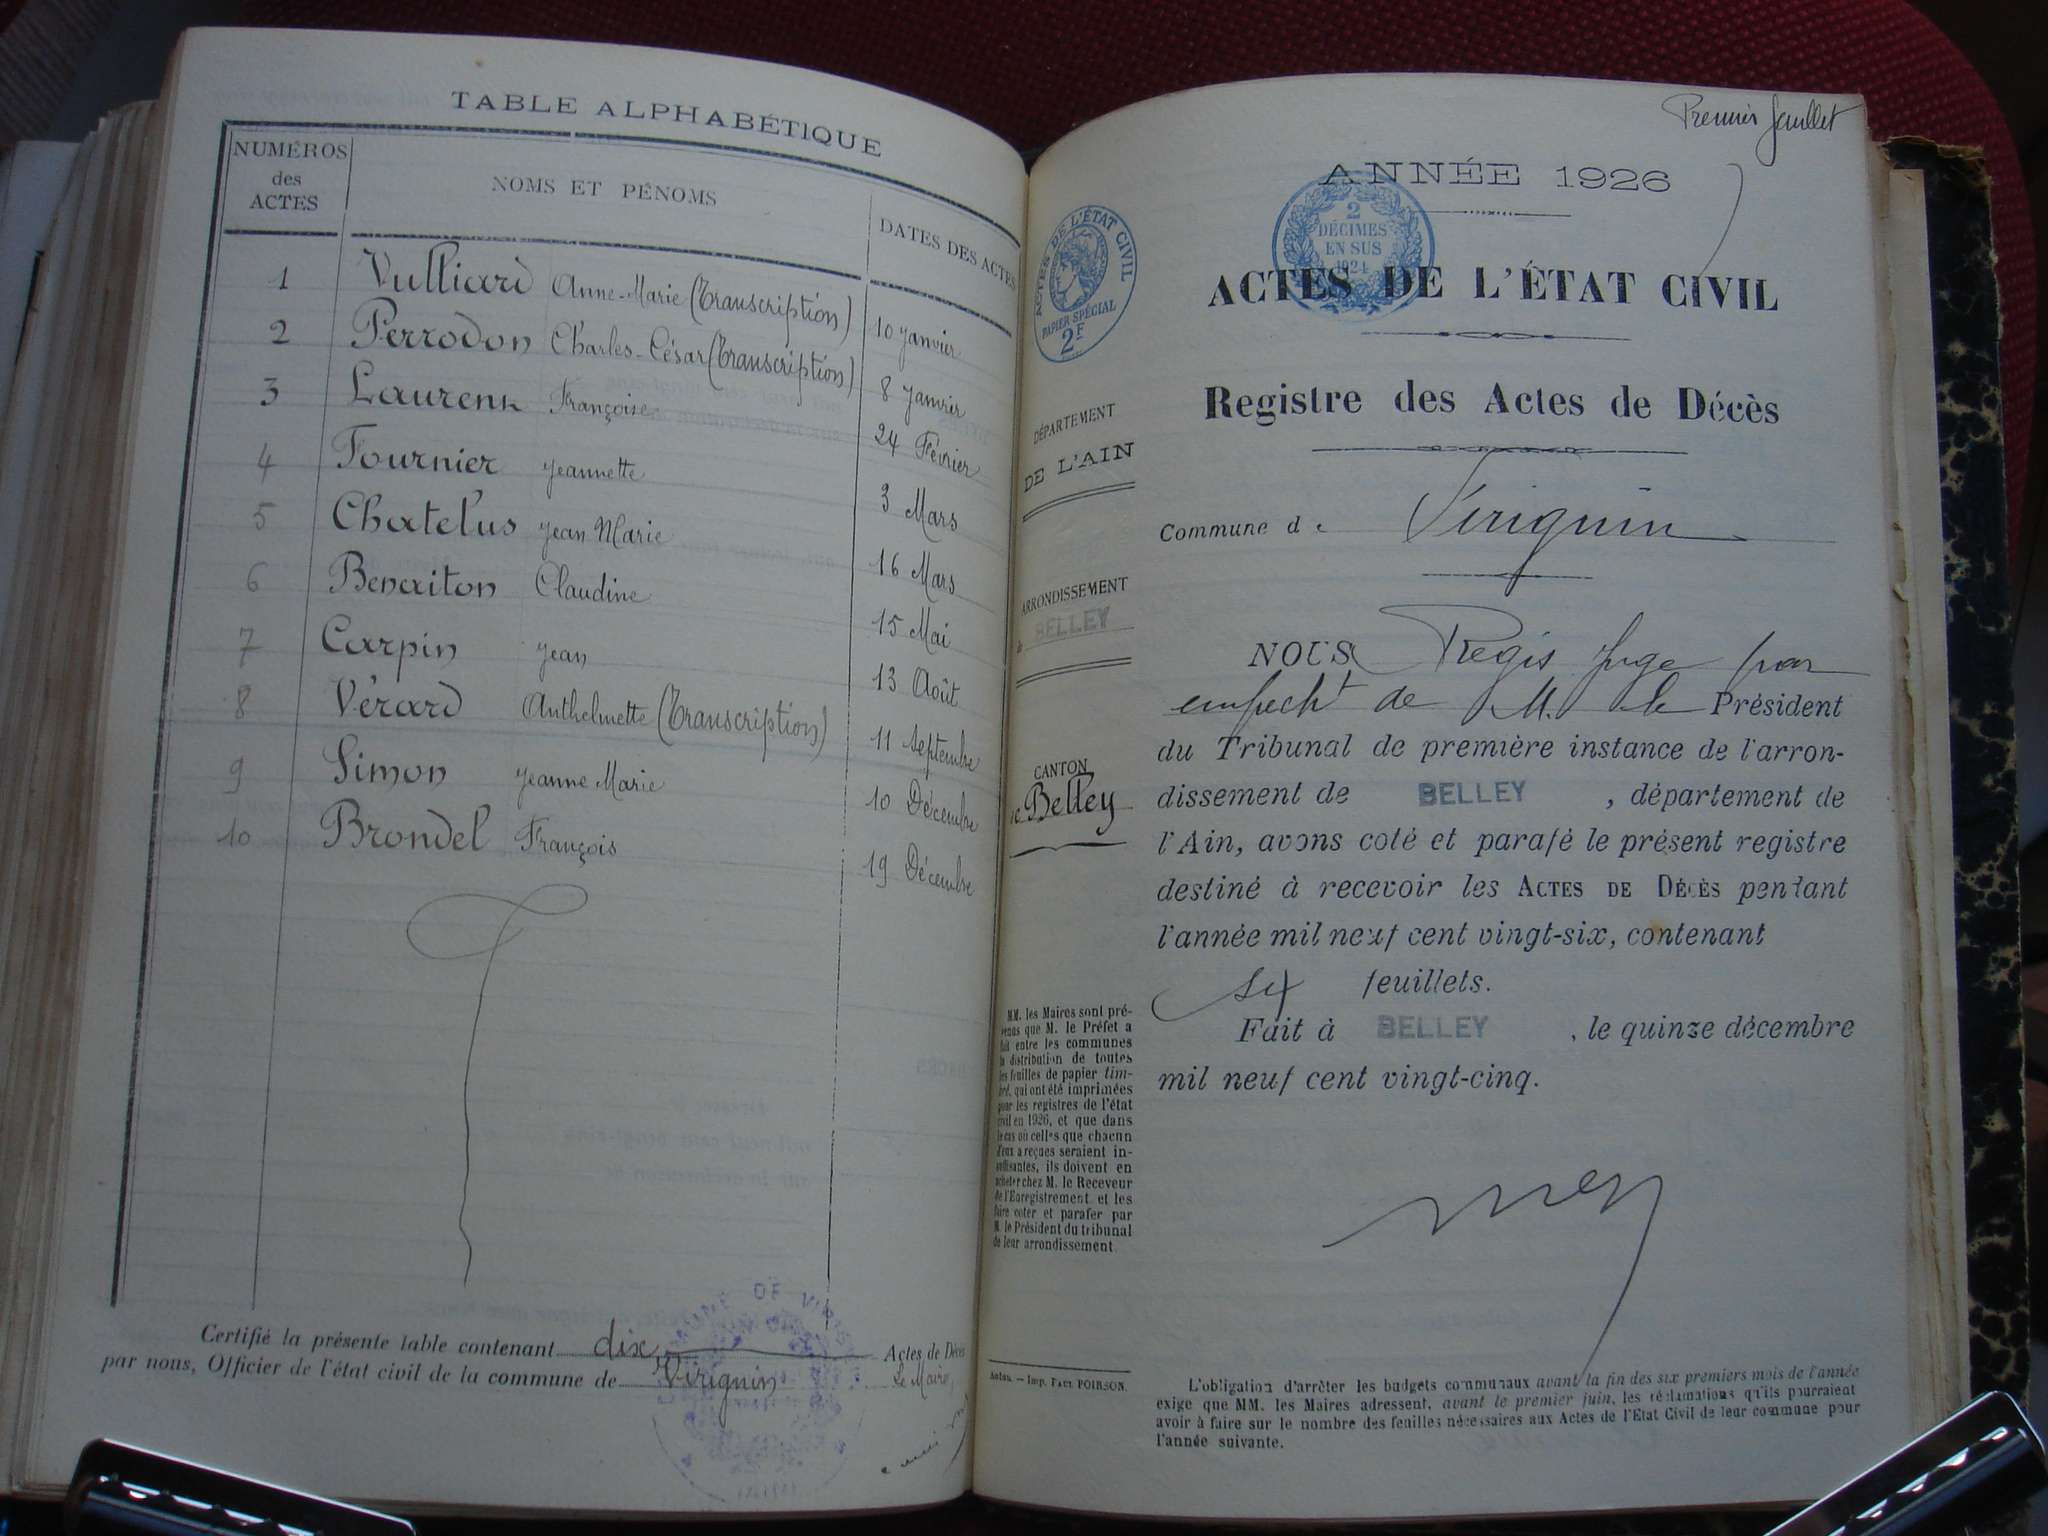 TABLE ALPHABÉTIQUE
NUMÉROS des ACTES NOMS ET PÉNOMS DATES DES ACTES
1 Vulliard Anne-Marie (Transcription) 10 Janvier
2 Perrodon Charles-César (Transcription) 8 Janvier
3 Laurent Françoise 24 Février
4 Fournier Jeannette 3 Mars
5 Chatelus Jean Marie 16 Mars
6 Benaiton Claudine 15 Mai
7 Carpin Jean 13 Août
8 Vérard Anthelmette (Transcription) 11 Septembre
9 Simon Jeanne Marie 10 Décembre
10 Brondel François 19 Décembre
Certifié la présente table contenant dix Actes de Décès
par nous, Officier de l'état civil de la commune de Virignin Le Maire,
COMMUNE DE VIRIGNIN
Premier feuillet
ANNÉE 1926
2
DÉCIMES
EN SUS
1924
ACTES DE L'ÉTAT CIVIL
PAPIER SPÉCIAL
2F
ACTES DE L'ÉTAT CIVIL
Registre des Actes de Décès
DÉPARTEMENT
DE L'AIN
Commune de Virignin
ARRONDISSEMENT
de BELLEY
CANTON
de Belley
NOUS Régis Juge par
empecht de M. le Président
du Tribunal de première instance de l'arron-
dissement de BELLEY, département de
l'Ain, avons coté et parafé le présent registre
destiné à recevoir les ACTES DE DÉCÈS pendant
l'année mil neuf cent vingt-six, contenant
six feuillets.
Fait à BELLEY, le quinze décembre
mil neuf cent vingt-cinq.
MM. les Maires sont pré-
venus que M. le Préfet a
fait entre les communes
la distribution de toutes
les feuilles de papier tim-
bré, qui ont été imprimées
pour les registres de l'état
civil en 1926, et que dans
le cas où celles que chacun
d'eux a reçues seraient in-
suffisantes, ils doivent en
acheter chez M. le Receveur
de l'Enregistrement et les
faire coter et parafer par
M. le Président du tribunal
de leur arrondissement.
Autun. — Imp. PAUL POIRSON.
L'obligation d'arrêter les budgets communaux avant la fin des six premiers mois de l'année
exige que MM. les Maires adressent, avant le premier juin, les réclamations qu'ils pourraient
avoir à faire sur le nombre des feuilles nécessaires aux Actes de l'État Civil de leur commune pour
l'année suivante.